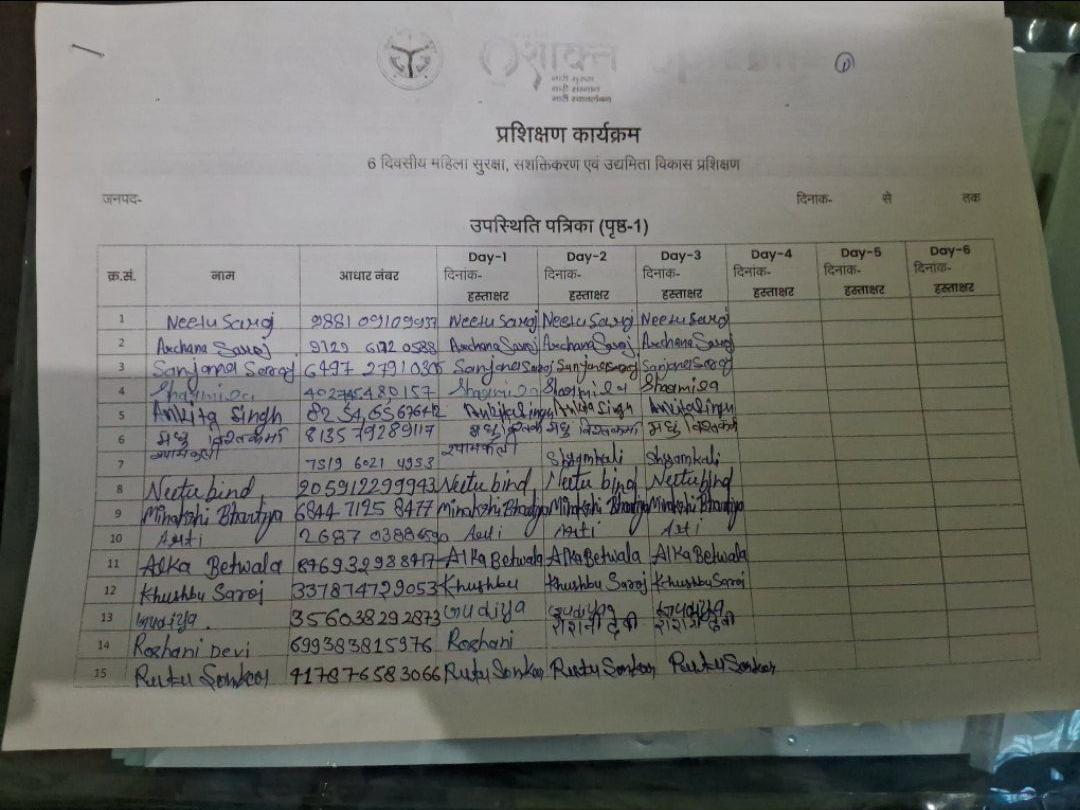 शक्ति
नारी सुरक्षा
नारी सम्मान
नारी स्वावलंबन
1
प्रशिक्षण कार्यक्रम
6 दिवसीय महिला सुरक्षा, सशक्तिकरण एवं उद्यमिता विकास प्रशिक्षण
जनपद- दिनांक- से तक
उपस्थिति पत्रिका (पृष्ठ-1)
क्र.सं. नाम आधार नंबर Day-1 Day-2 Day-3 Day-4 Day-5 Day-6
दिनांक- दिनांक- दिनांक- दिनांक- दिनांक- दिनांक-
हस्ताक्षर हस्ताक्षर हस्ताक्षर हस्ताक्षर हस्ताक्षर हस्ताक्षर
1 Neetu Saroj Neetu Saroj Neetu Saroj Neetu Saroj
2 Archana Saroj Archana Saroj Archana Saroj Archana Saroj
3 Sanjana Saroj 6497 27910305 Sanjana Saroj Sanjana saroj Sanjana Saroj
4 Sharmila Sharmila Sharmila Sharmila
5 Ankita Singh Ankita Singh Ankita Singh Ankita Singh
6 मधु विश्वकर्मा 813579289117 मधु मधु विश्वकर्मा मधु विश्वकर्मा
7 श्यामकली 7519 6021 4953 श्यामकली Shyamkali Shyamkali
8 Neetu bind 205912299943 Neetu bind Neetu bind Neetu bind
9 Minakshi Bhartiya 6844 7125 8477 Minakshi Bhartiya Minakshi Bhartiya Minakshi Bhartiya
10 Arti Arti Arti Arti
11 Alka Betwala Alka Betwala Alka Betwala Alka Betwala
12 Khushbu Saroj 337874729053 Khushbu Khushbu Saroj Khushbu Saroj
13 Gudiya. 356038292873 Gudiya Gudiya Gudiya
14 Roshani Devi 699383815976 Roshani रोशनी देवी रोशनी देवी
15 Rutu Sonkar 417876583066 Rutu Sonkar Rutu Sonkar Rutu Sonkar